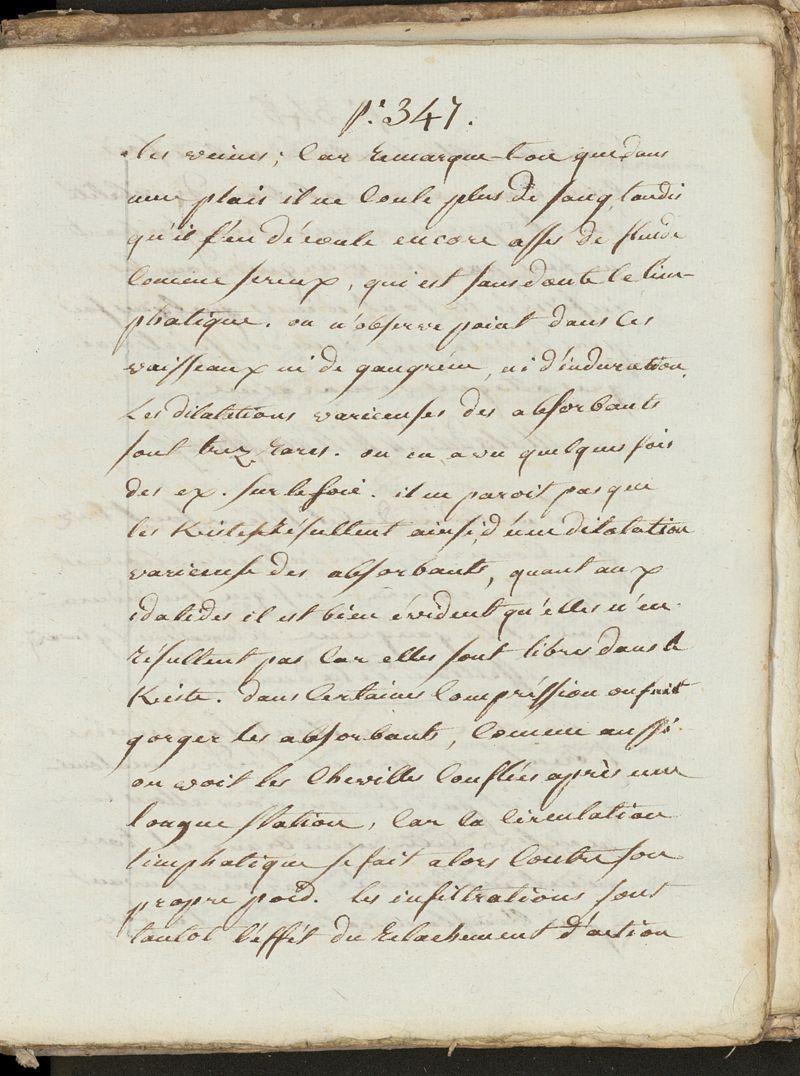 p.e 347.
les veines; Car remarque-t'on que dans
une plais il ne Coule plus de sang, tandis
qu'il s'en découle encore assés de fluide
Comme sereux, qui est sans doute le lim-
phatique. on n'observe point dans ces
vaisseaux ni de gangréne, ni d'induration.
Les dilatations variceuses des absorbants
sont trez rares. on en a vu quelques fois
des ex. sur le foie. il ne paroit pas que
les Kistes résultent ainsi d'une dilatation
variceuse des absorbants, quant aux
idatides il est bien évident qu'elles n'en
résultent pas Car elles sont libres dans le
Kiste. dans Certaines Compréssion on fait
gorger les absorbants, Comme aussi
on voit les Chevilles Conflées après une
longue station, Car la Circulation
limphatique se fait alors Contre son
propre poid. les infiltrations sont
tantot l'éffét du relachement d'action